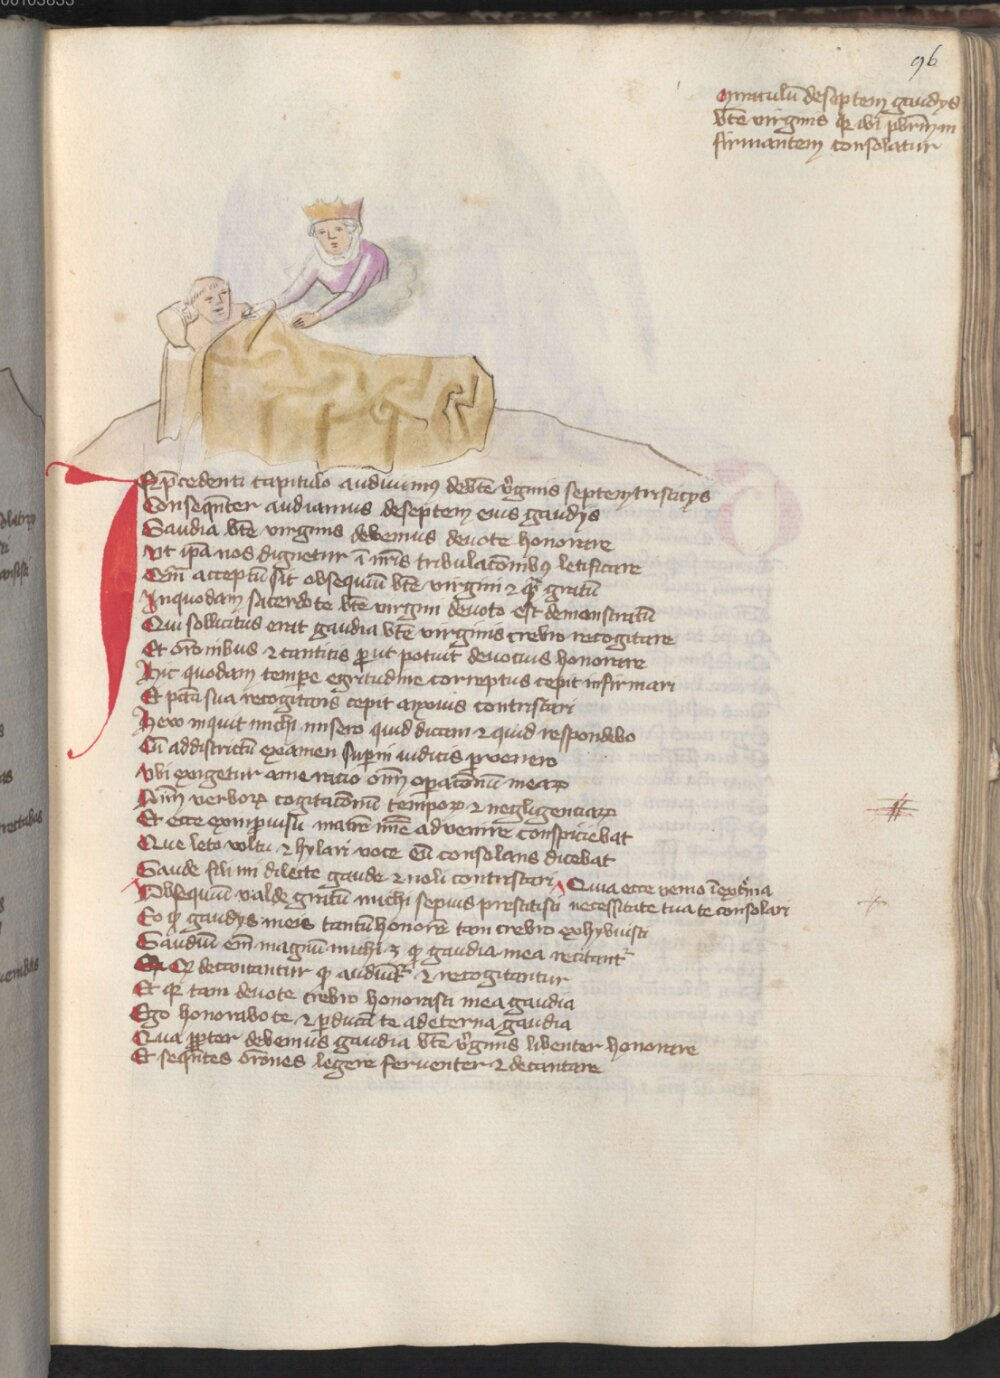 96
Miraculu̅ de septem gaudijs
bte̅ virginis
firmantem consolatur
In p̅cedenti capitulo audiuimus de bte̅ v̓ginis septem tristicijs
Conseque̅ter audiamus de septem eius gaudijs
Gaudia bte̅ virginis debemus deuote honorare
Ut ip̅a nos dignetur i̅ nr̅is tribulaco̅nibus letificare
Q̅m acceptu̅ sit obsequiu̅ bte̅ virgini ⁊ gratu̅
In quodam sacerdote bte̅ virgini deuoto est demonstratu̅
Qui sollicitus erat gaudia bte̅ virginis crebro recogitare
Et oro̅nibus ⁊ canticis put potuit deuocius honorare
Hic quodam tempe egritudine correptus cepit infirmari
Et pcta̅ sua recogitans cepit anxius contristari
Hew inquit michi misero quid dicam ⁊ quid respondebo
Cu̅ ad districtu̅ examen supni iudicis peruenero
Vbi exigetur a me racio om̅ opaco̅num mearꝝ
Om̅ verborꝝ cogitaco̅nu̅ temporꝝ ⁊ negligenciarꝝ
Et ecce ex improuisu matre̅ mie̅ aduenire conspiciebat
Que leto vultu ⁊ hylari voce eu̅ consolans dicebat
Gaude fili mi dilecte gaude ⁊ noli contristari Quia ecce venio i̅ ext̓ma
Obsequiu̅ valde gratu̅ michi sepius prestitisti necessitate tua te consolari
Eo ꝙ gaudijs meis tantu̅ honore̅ tam crebro exhybuisti
Gaudiu̅ em̅ magnu̅ michi ꝫ ꝙ gaudia mea recitant̓
Et decantantur ꝙ audiu̅t̓ ⁊ recogitantur
Et quia tam deuote crebro honorasti mea gaudia
Ego honorabo te ⁊ pducam te ad eterna gaudia
Qua ppter debemus gaudia bte̅ v̓ginis libenter honorare
Et seque̅tes oro̅nes legere feruenter ⁊ decantare